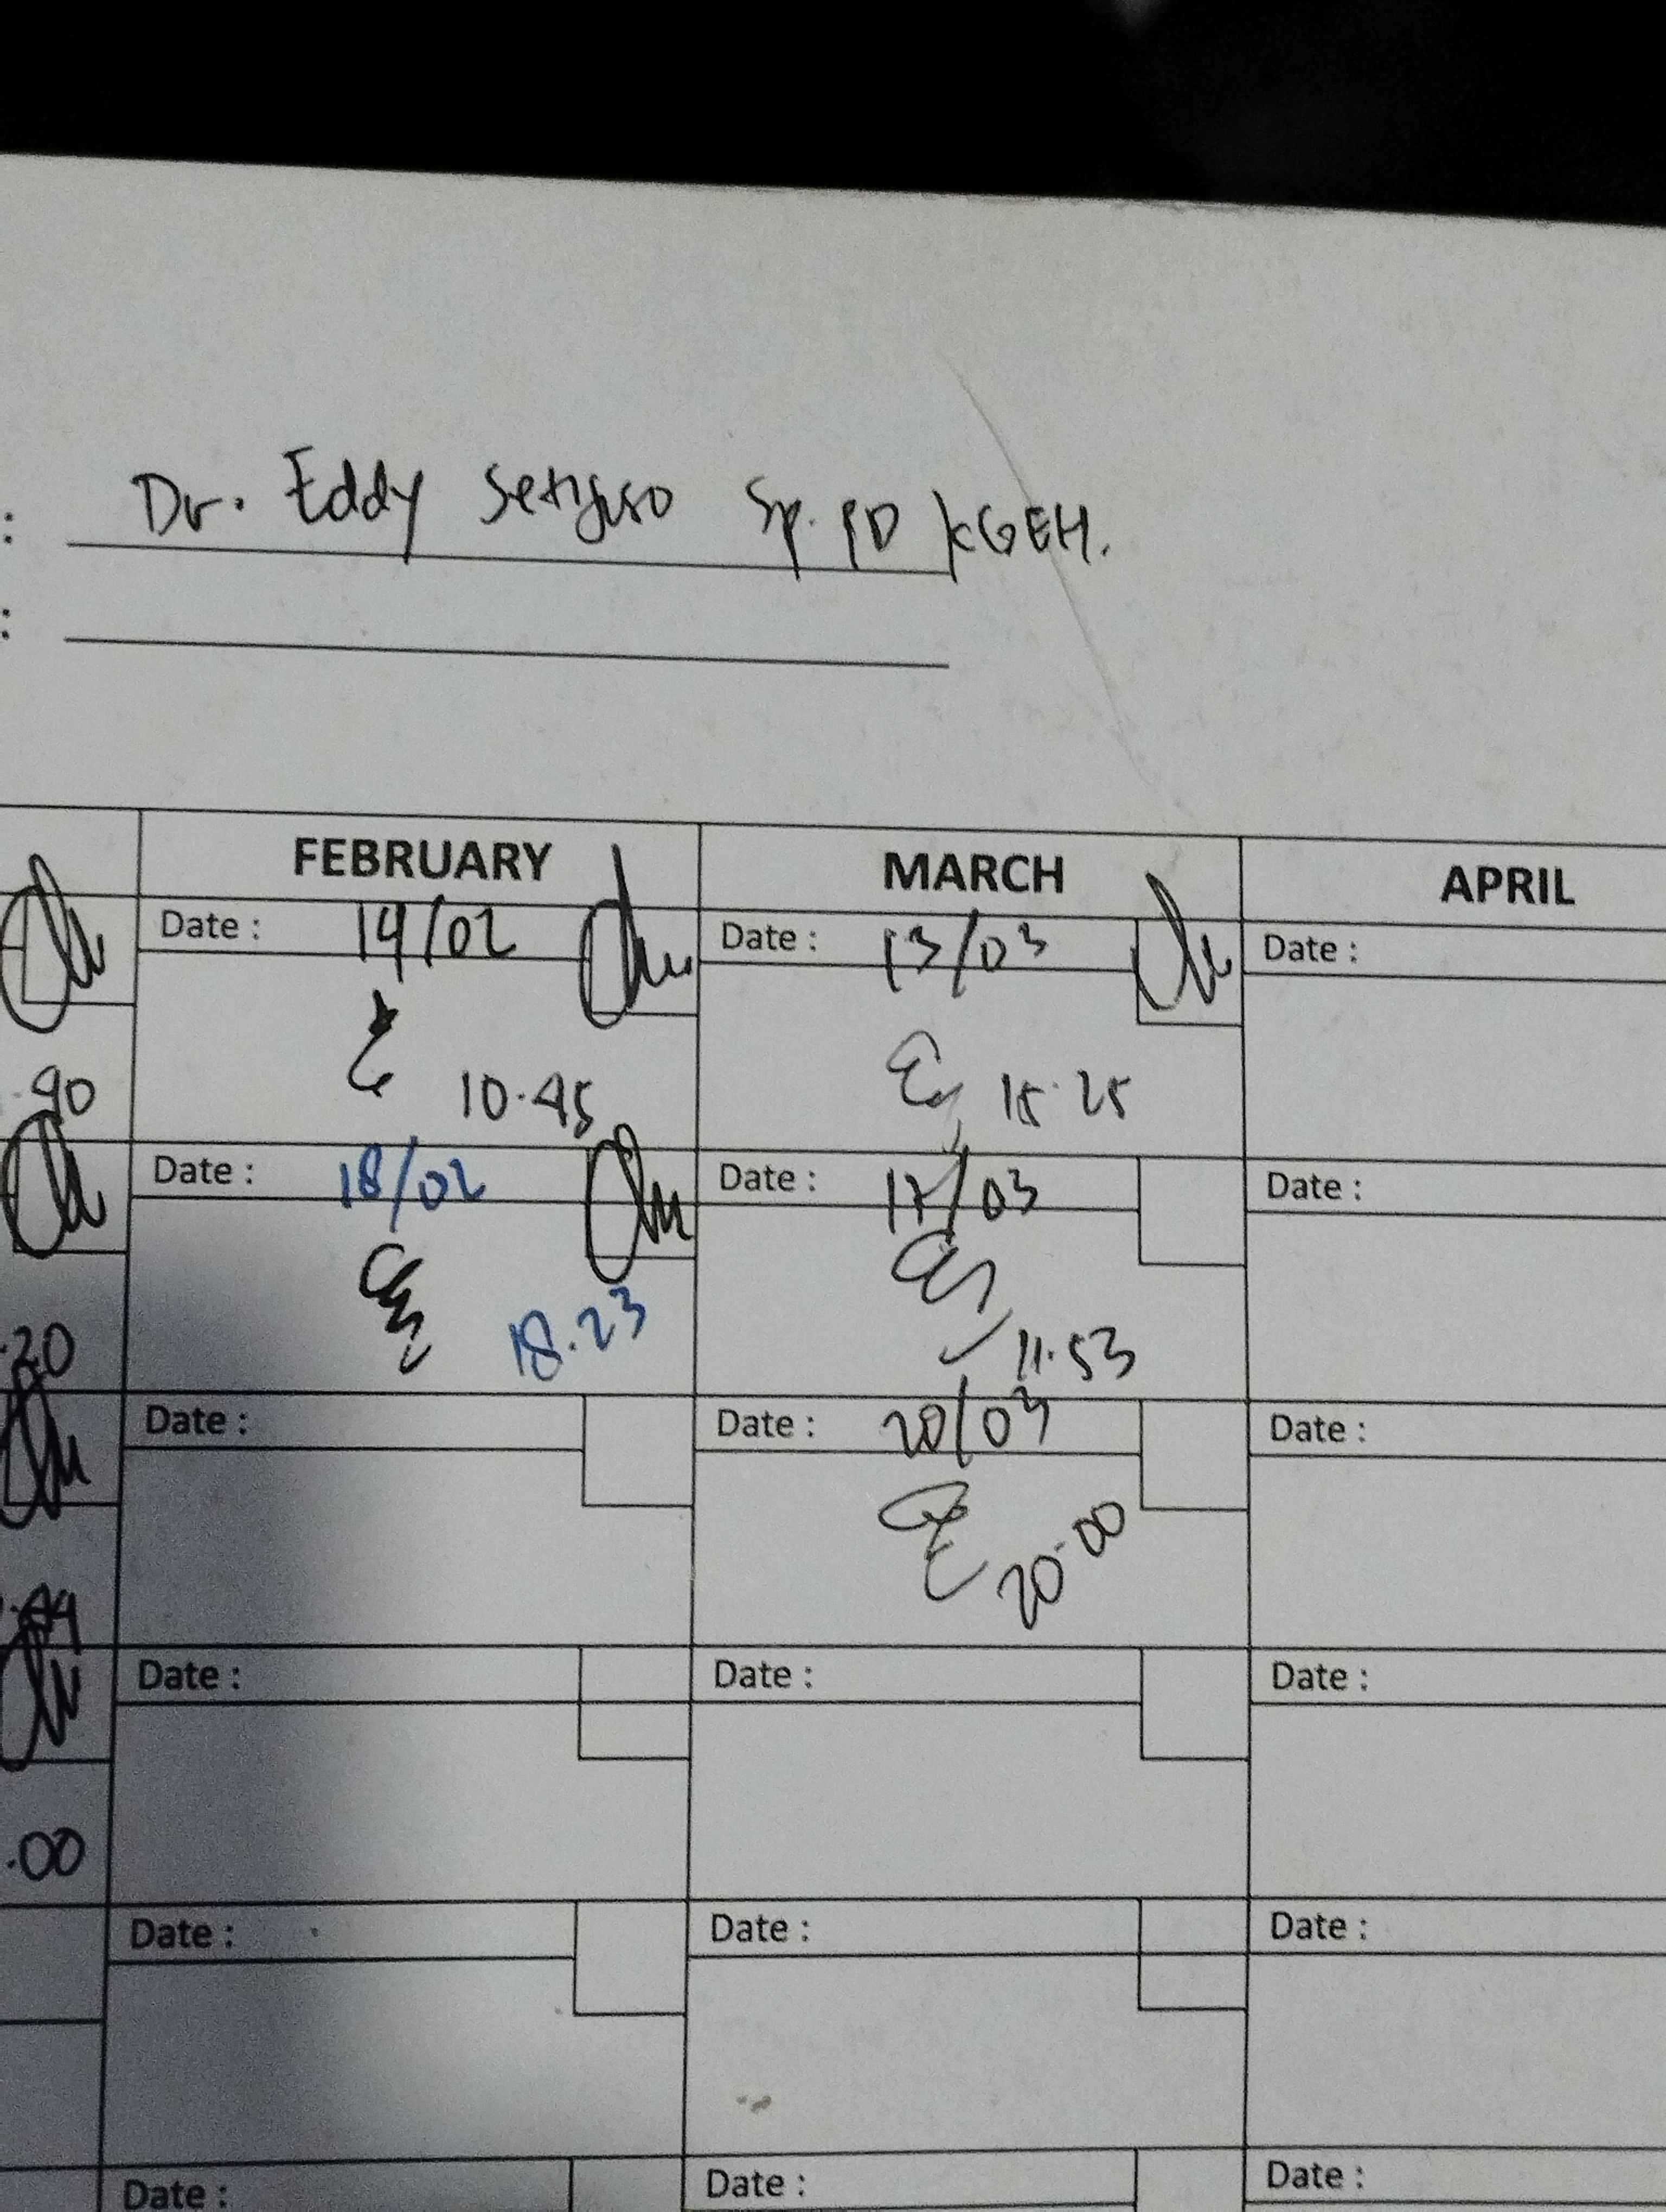 : Dr. Eddy Setiyuso Sp. PD KGEH.
:
FEBRUARY MARCH APRIL
Date : 14/02 Date : 13/03 Date :
.40 10.45 15.25
Date : 18/02 Date : 17/03 Date :
.20 18.23 11.53
Date : Date : 20/03 Date :
20.00
Date : Date : Date :
.00
Date : Date : Date :
Date : Date : Date :